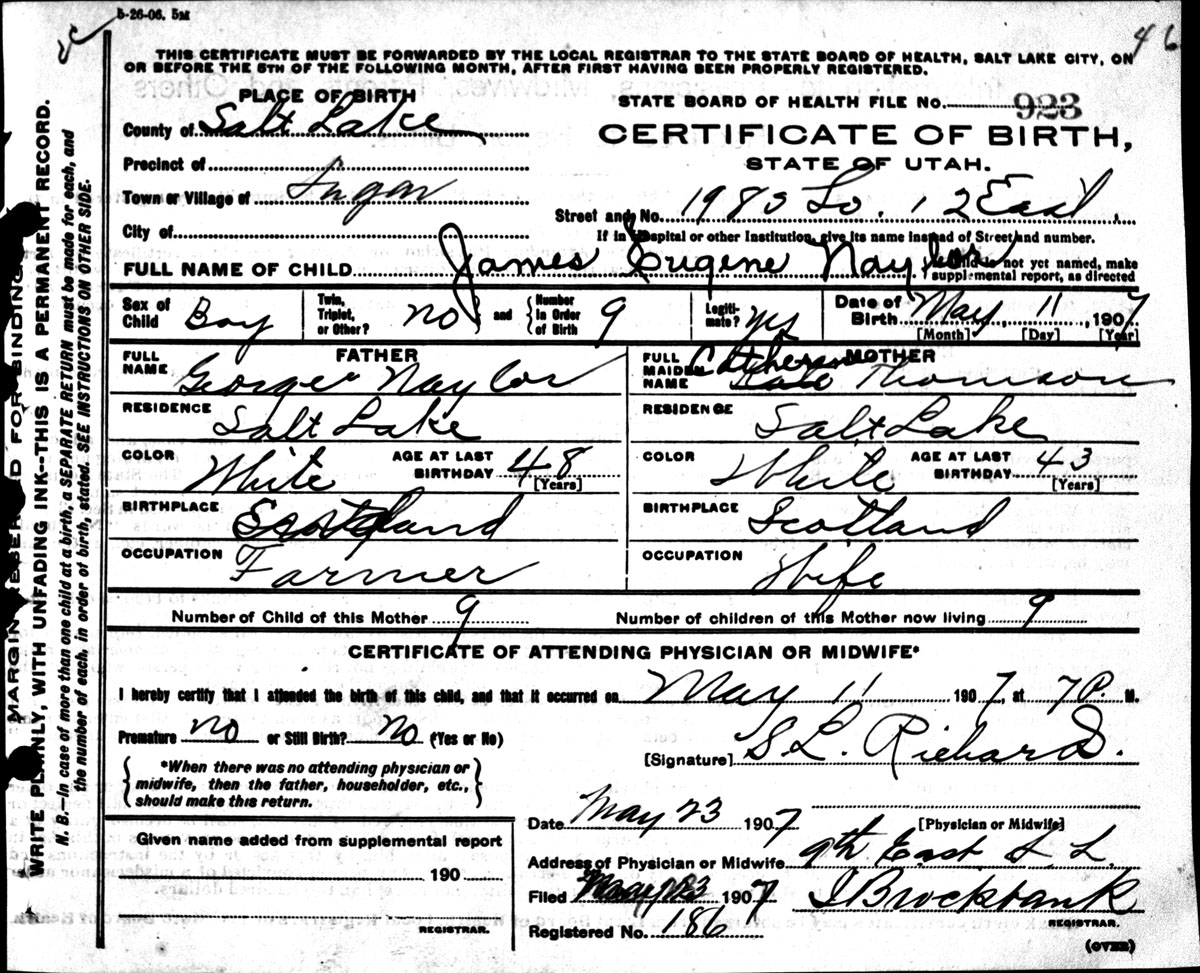 5-26-06. 5M
46
THIS CERTIFICATE MUST BE FORWARDED BY THE LOCAL REGISTRAR TO THE STATE BOARD OF HEALTH, SALT LAKE CITY, ON
OR BEFORE THE 5TH OF THE FOLLOWING MONTH, AFTER FIRST HAVING BEEN PROPERLY REGISTERED.
PLACE OF BIRTH
County of Salt Lake
Precinct of
Town or Village of Sugar
City of
STATE BOARD OF HEALTH FILE No. 923
CERTIFICATE OF BIRTH,
STATE OF UTAH.
Street and No. 1980 So. 12 East.
If in Hospital or other Institution, give its name instead of Street and number.
FULL NAME OF CHILD James Eugene Naylor
child is not yet named, make
supplemental report, as directed
Sex of Child Boy
Twin, Triplet, or Other? no and Number in Order of Birth 9
Legiti-mate? yes
Date of Birth May 11, 1907
[Month] [Day] [Year]
FATHER
FULL NAME George Naylor
RESIDENCE Salt Lake
COLOR White AGE AT LAST BIRTHDAY 48
[Years]
BIRTHPLACE Scotland
OCCUPATION Farmer
MOTHER
FULL MAIDEN NAME Thomson
RESIDENCE Salt Lake
COLOR White AGE AT LAST BIRTHDAY 43
[Years]
BIRTHPLACE Scotland
OCCUPATION Wife
Number of Child of this Mother 9 Number of children of this Mother now living 9
CERTIFICATE OF ATTENDING PHYSICIAN OR MIDWIFE*
I hereby certify that I attended the birth of this child, and that it occurred on May 11 1907, at 7 P. M.
Premature no or Still Birth? No (Yes or No)
[Signature] S. L. Richards.
*When there was no attending physician or
midwife, then the father, householder, etc.,
should make this return.
Date May 23 1907
[Physician or Midwife]
Given name added from supplemental report
190
REGISTRAR.
Address of Physician or Midwife 9th East S. L.
Filed May 23 1907 Brockbank
REGISTRAR.
Registered No. 186
(OVER)
MARGIN RESERVED FOR BINDING
WRITE PLAINLY, WITH UNFADING INK--THIS IS A PERMANENT RECORD.
N. B.—In case of more than one child at a birth, a SEPARATE RETURN must be made for each, and
the number of each, in order of birth, stated. SEE INSTRUCTIONS ON OTHER SIDE.